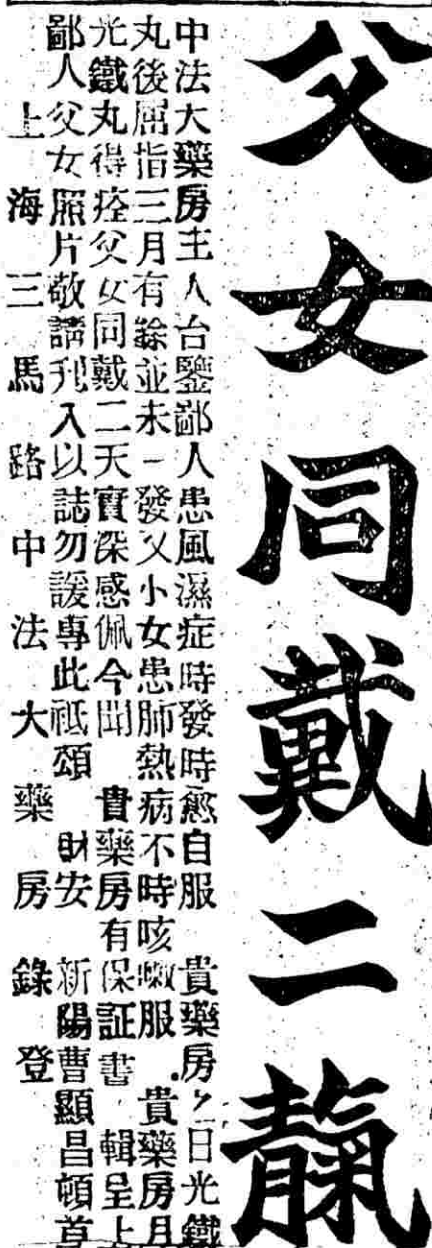 父女同戴二靝
中法大藥房主人台鑒鄙人患風濕症時發時愈自服　貴藥房之日光鐵
丸後屈指三月有餘並未一發又小女患肺熱病不時咳嗽服　貴藥房月
光鐵丸得痊父女同戴二天實深感佩今聞　貴藥房有保証書　輯呈上
鄙人父女照片敬請刊入以誌勿諼專此祗頌　財安　新陽曹顯昌頓首
上海三馬路中法大藥房錄登